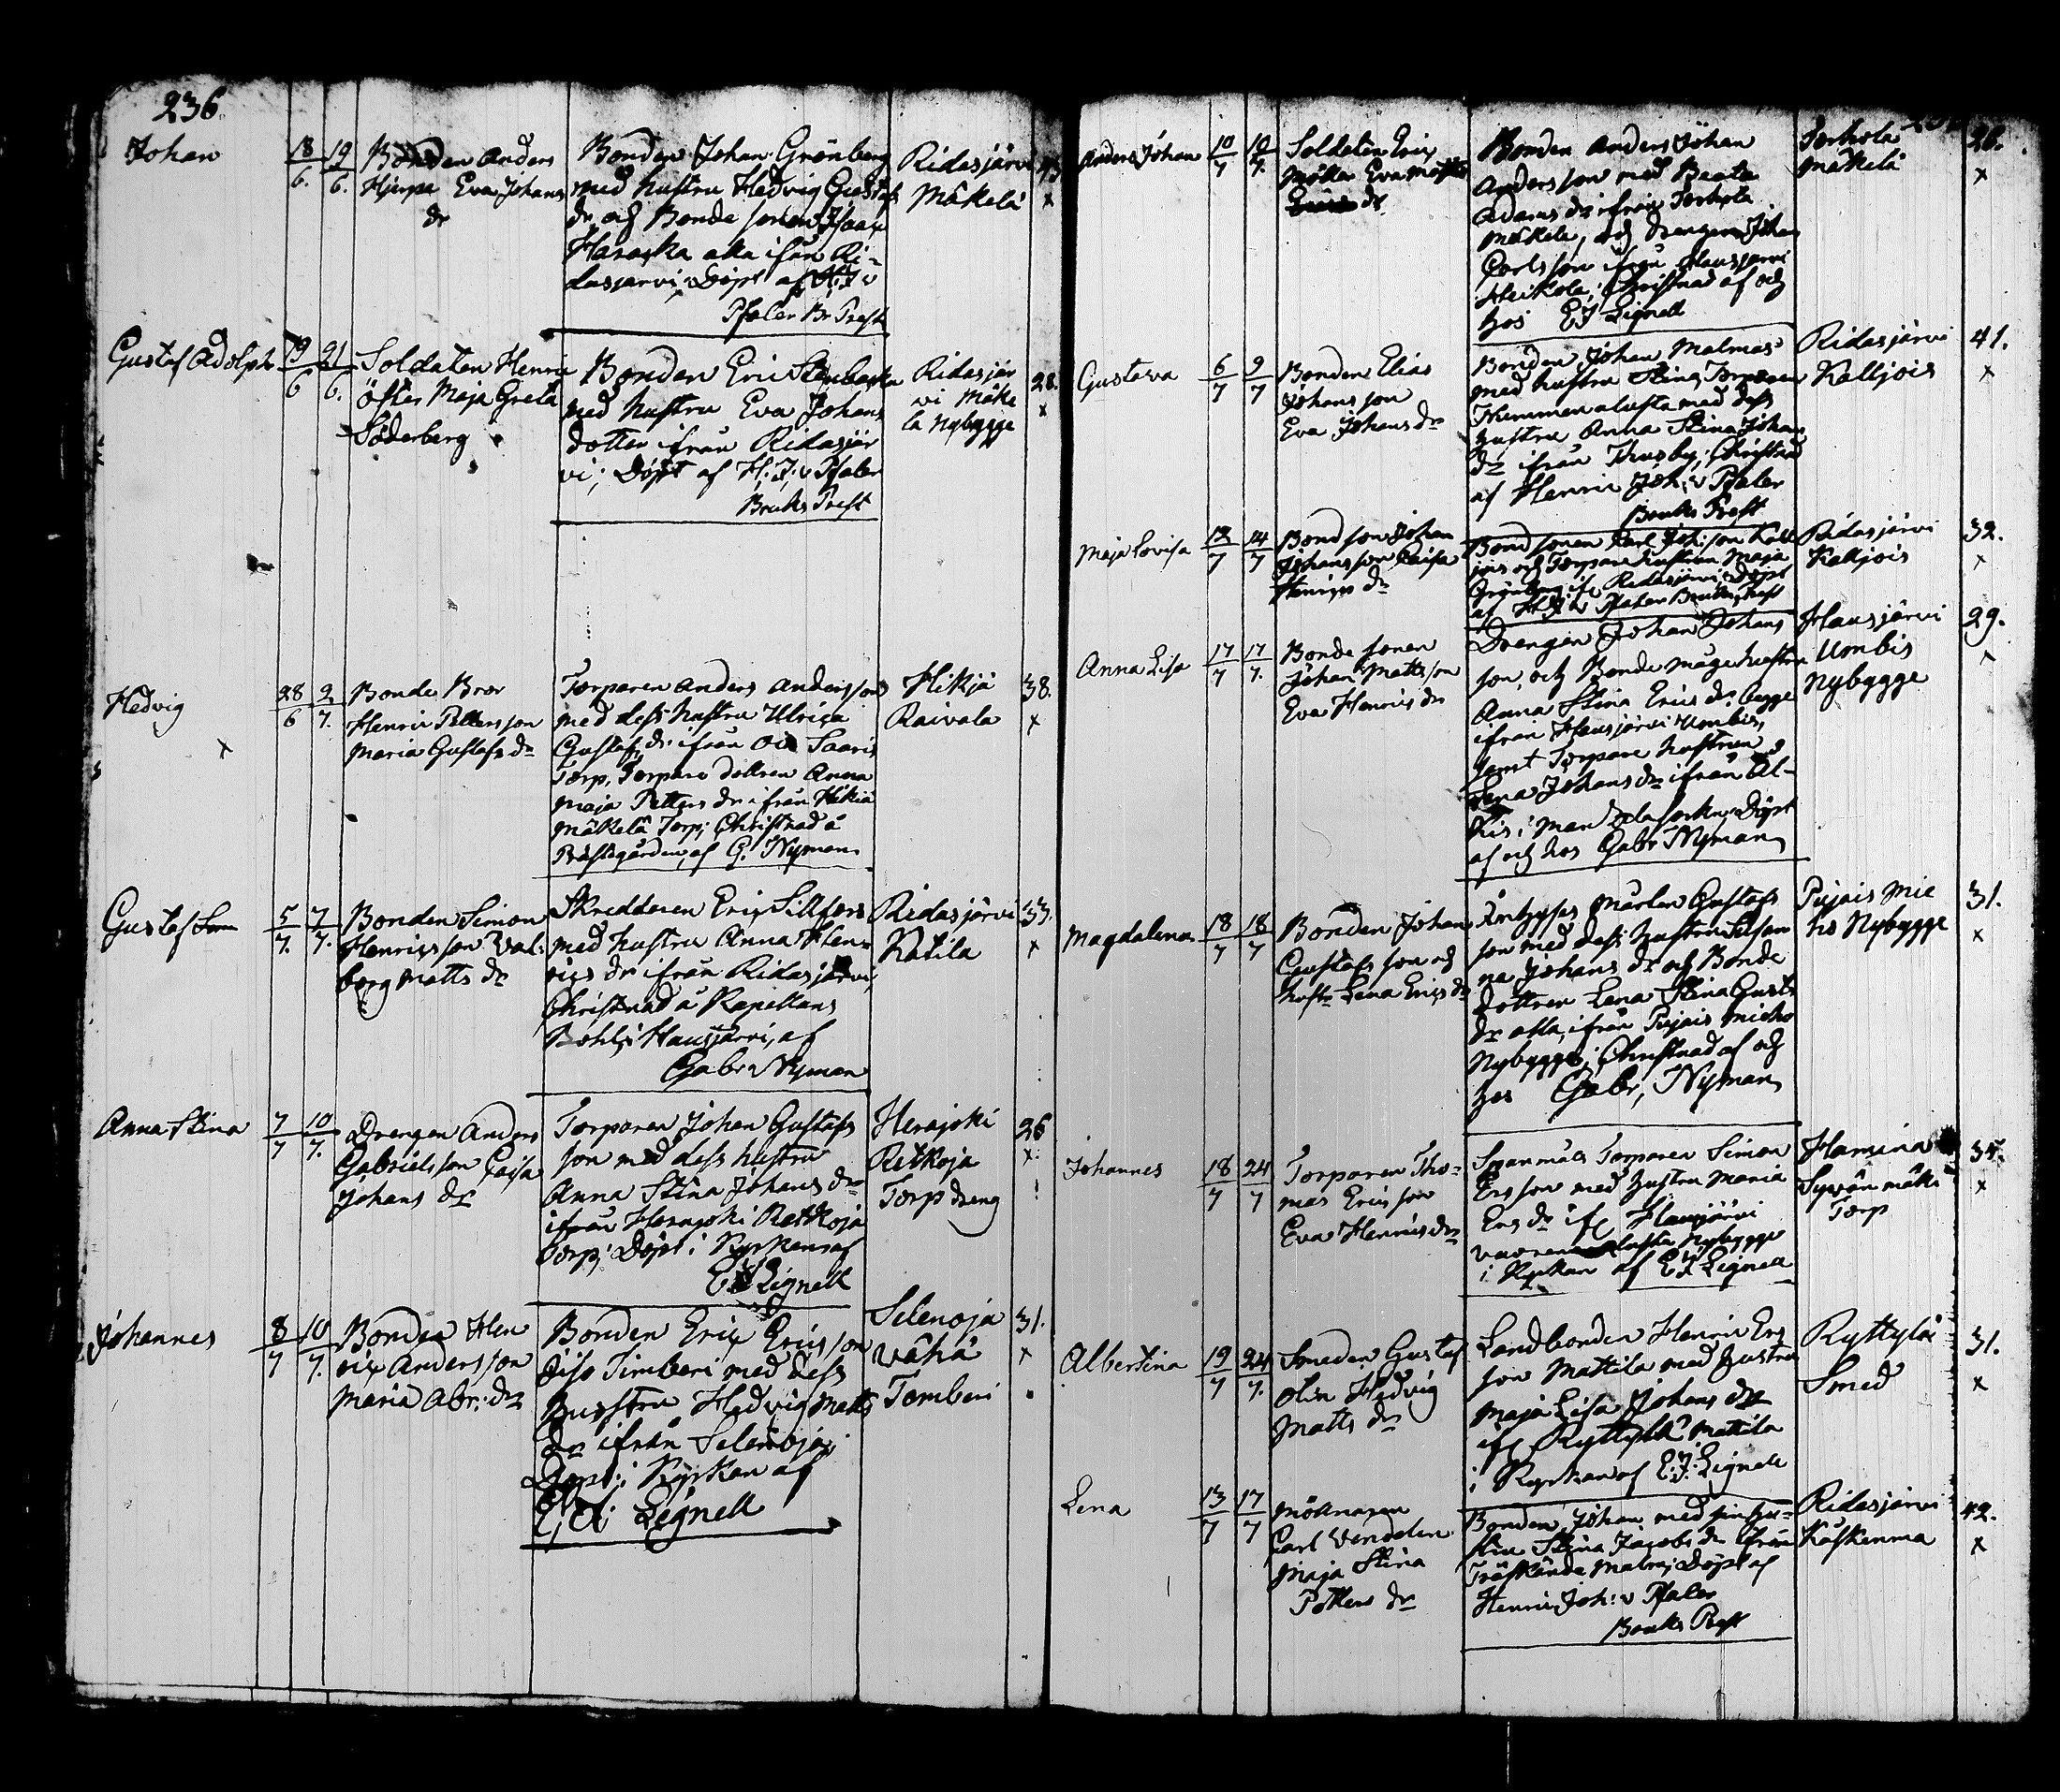 236.
Johan
18/6. 19/6.
Bonden Anders
Hjerpe Eva Johans
dr
Bonden Johan Grönberg
med hustru Hedvig Gustafs
dr, och Bonde sonen Isaac
Haraska alla ifrån Ri-
dasjärvi, Döpt af H: J: v
Pfaler Br Prest
Ridasjärvi
Mäkelä
x
Gustaf Adolph
19/6 21/6.
Soldaten Henric
Öster Maja Greta
Söderberg
Bonden Eric Stenbacka
med hustru Eva Johans
dotter ifrån Ridasjär
vi; Döpt af H: J: v Pfaler
Bruks Prest
Ridasjär
vi Mäke
la Nybygge
28.
x
Hedvig
x
28/6 2/7.
Bonde Bror
Henric Pettersson
Maria Gustafs dr
Torparen Anders Andersson
med dess hustru Ulrica
Gustafs dr ifrån Saaris
Torp, Torpare dottren Anna
Maja Petters dr ifrån Hikiä
Mäkelä Torp; Christnad å
Prästegården, af G. Nyman
Hikjä
Raivala
38.
x
Gustaf
5/7. 7/7.
Bonden Simon
Henricsson Val-
borg Matts dr
Skreddaren Eric Sillfors
med hustru Anna Hen-
rics dr ifrån Ridasjärvi,
Christnad å Kapellans
Bohl i Hausjärvi, af
Gabr Nyman
Ridasjärvi
Katila
33.
x
Anna Stina
7/7 10/7.
Drengen Anders
Gabrielsson Caisa
Johans dr
Torparen Johan Gustafs
son med dess hustru
Anna Stina Johans dr
ifrån Herajoki Retkoja
Torp; Döpt i Kyrkan af
E J Lignell
Herajoki
Retkoja
Torp dreng
26
x
Johannes
8/7 10/7.
Bonden Hen
ric Andersson
Maria Abr: dr
Bonden Eric Ericsson
Iso Timberi med dess
hustru Hedvig Matts
dr ifrån Selenoja;
Döpt i Kyrkan af
E: J: Lignell
Selenoja
vähä
Tomberi
31.
x
Anders Johan
10/7 10/7.
Soldaten Eric
Möller Eva Matts
dr
Bonden Anders Johan
Andersson med Beata
Adams dr ifrån Torhola
Mäkelä, och drengen Johan
Carlsson ifrån Hausjärvi
Heikola; Christnad af och
hos E J Lignell
Torhola
Mäkelä
26.
x
Gustava
6/7 9/7
Bonden Elias
Johansson
Eva Johans dr
Bonden Johan Malmas
med hustru Stina, Torparen
med dess
hustru Anna Stina Johans
dr ifrån Thusby; Christnad
af Henric Joh: v Pfaler
Bruks Prest
Ridasjärvi
Kalljois
41.
x
Maja Lovisa
12/7 14/7
Bond son Johan
Johansson Caisa
Henrics dr
Bond sonen Carl Joh: son Kall
jois och Torpare hustrun Maja
Grönberg ifr Ridasjärvi, Döpt
af H J v Pfaler Bruks Prest
Ridasjärvi
Kalljois
32.
x
Anna Lisa
17/7 17/7.
Bonde sonen
Johan Mattsson
Eva Henrics dr
Drengen Johan Johans
son, och Bonde måge hustru
Anna Stina Erics dr begge
ifrån Hausjärvi Umbis,
samt Torpare hustrun
Lena Johans dr ifrån Al-
kis i Mändzela sockn; Döpt
af och hos Gabr Nyman
Hausjärvi
Umbis
Nybygge
29.
x
Magdalena
18/7 18/7
Bonden Johan
Gustafsson och
hustr Lena Erics dr
Inhyses Mårten Gustafs
son med dess hustru Susan
na Johans dr och Bonde
dottren Lena Stina Gustafs
dr alla ifrån Pujais Mieho
Nybygge; Christnad af och
hos Gabr, Nyman
Pujais Mie
ho Nybygge
31.
x
Johannes
18/7 24/7
Torparen Tho-
mas Ericsson
Eva Henrics dr
Spanmåls Torparen Simon
Ersson med hustru Maria
Ers dr ifr Hausjärvi
Nybygge
i Kyrkan af E J Lignell
Hamina
Syvänmäki
Torp
34.
x
Albertina
19/7 24/7.
Smeden Gustaf
Olin Hedvig
Matts dr
Landbonden Henric Ers
son Mattila med hustru
Maja Lisa Johans dr
ifr Ryttylä Mattila
i Kyrkan af E: J: Lignell
Ryttylä
Smed
31.
x
Lena
13/7 17/7
Möllnaren
Carl Venoden
Maja Stina
Petters dr
Bonden Johan med sin hu-
stru Stina Jacobs dr ifrån
Träskända Malm; Döpt af
Henric Joh: v Pfaler
Bruks Prest
Ridasjärvi
Käskenma
42.
x